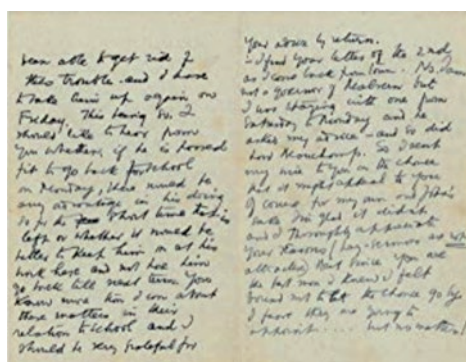 been able to get rid of
this trouble and I have
to take him up again on
Friday. This being so I
should like to hear from
you whether, if he is passed
fit to go back for school
on Monday, there would be
any advantage in his doing
so for the short time that is
left or whether it would be
better to keep him on at his
work here and not have him
go back till next term. You
know more than I can about
these matters in their
relation to school and I
should be very grateful for
your advice by return.
I find your letter of the 2nd
as I come back from town. No, I am
not a governor of Malvern but
I was staying with one from
Saturday to Monday and he
asked my advice - and so did
Lord Beauchamp. So I sent
my wire to you on the chance
that it might appeal to you
of course for my own and John's
sake I'm glad it didn't
and I thoroughly appreciate
your reasons (lay-sermons are not
attractive) But since you are
the best man I know I felt
bound not to let the chance go by
I fear they are going to
appoint .... but no matter!